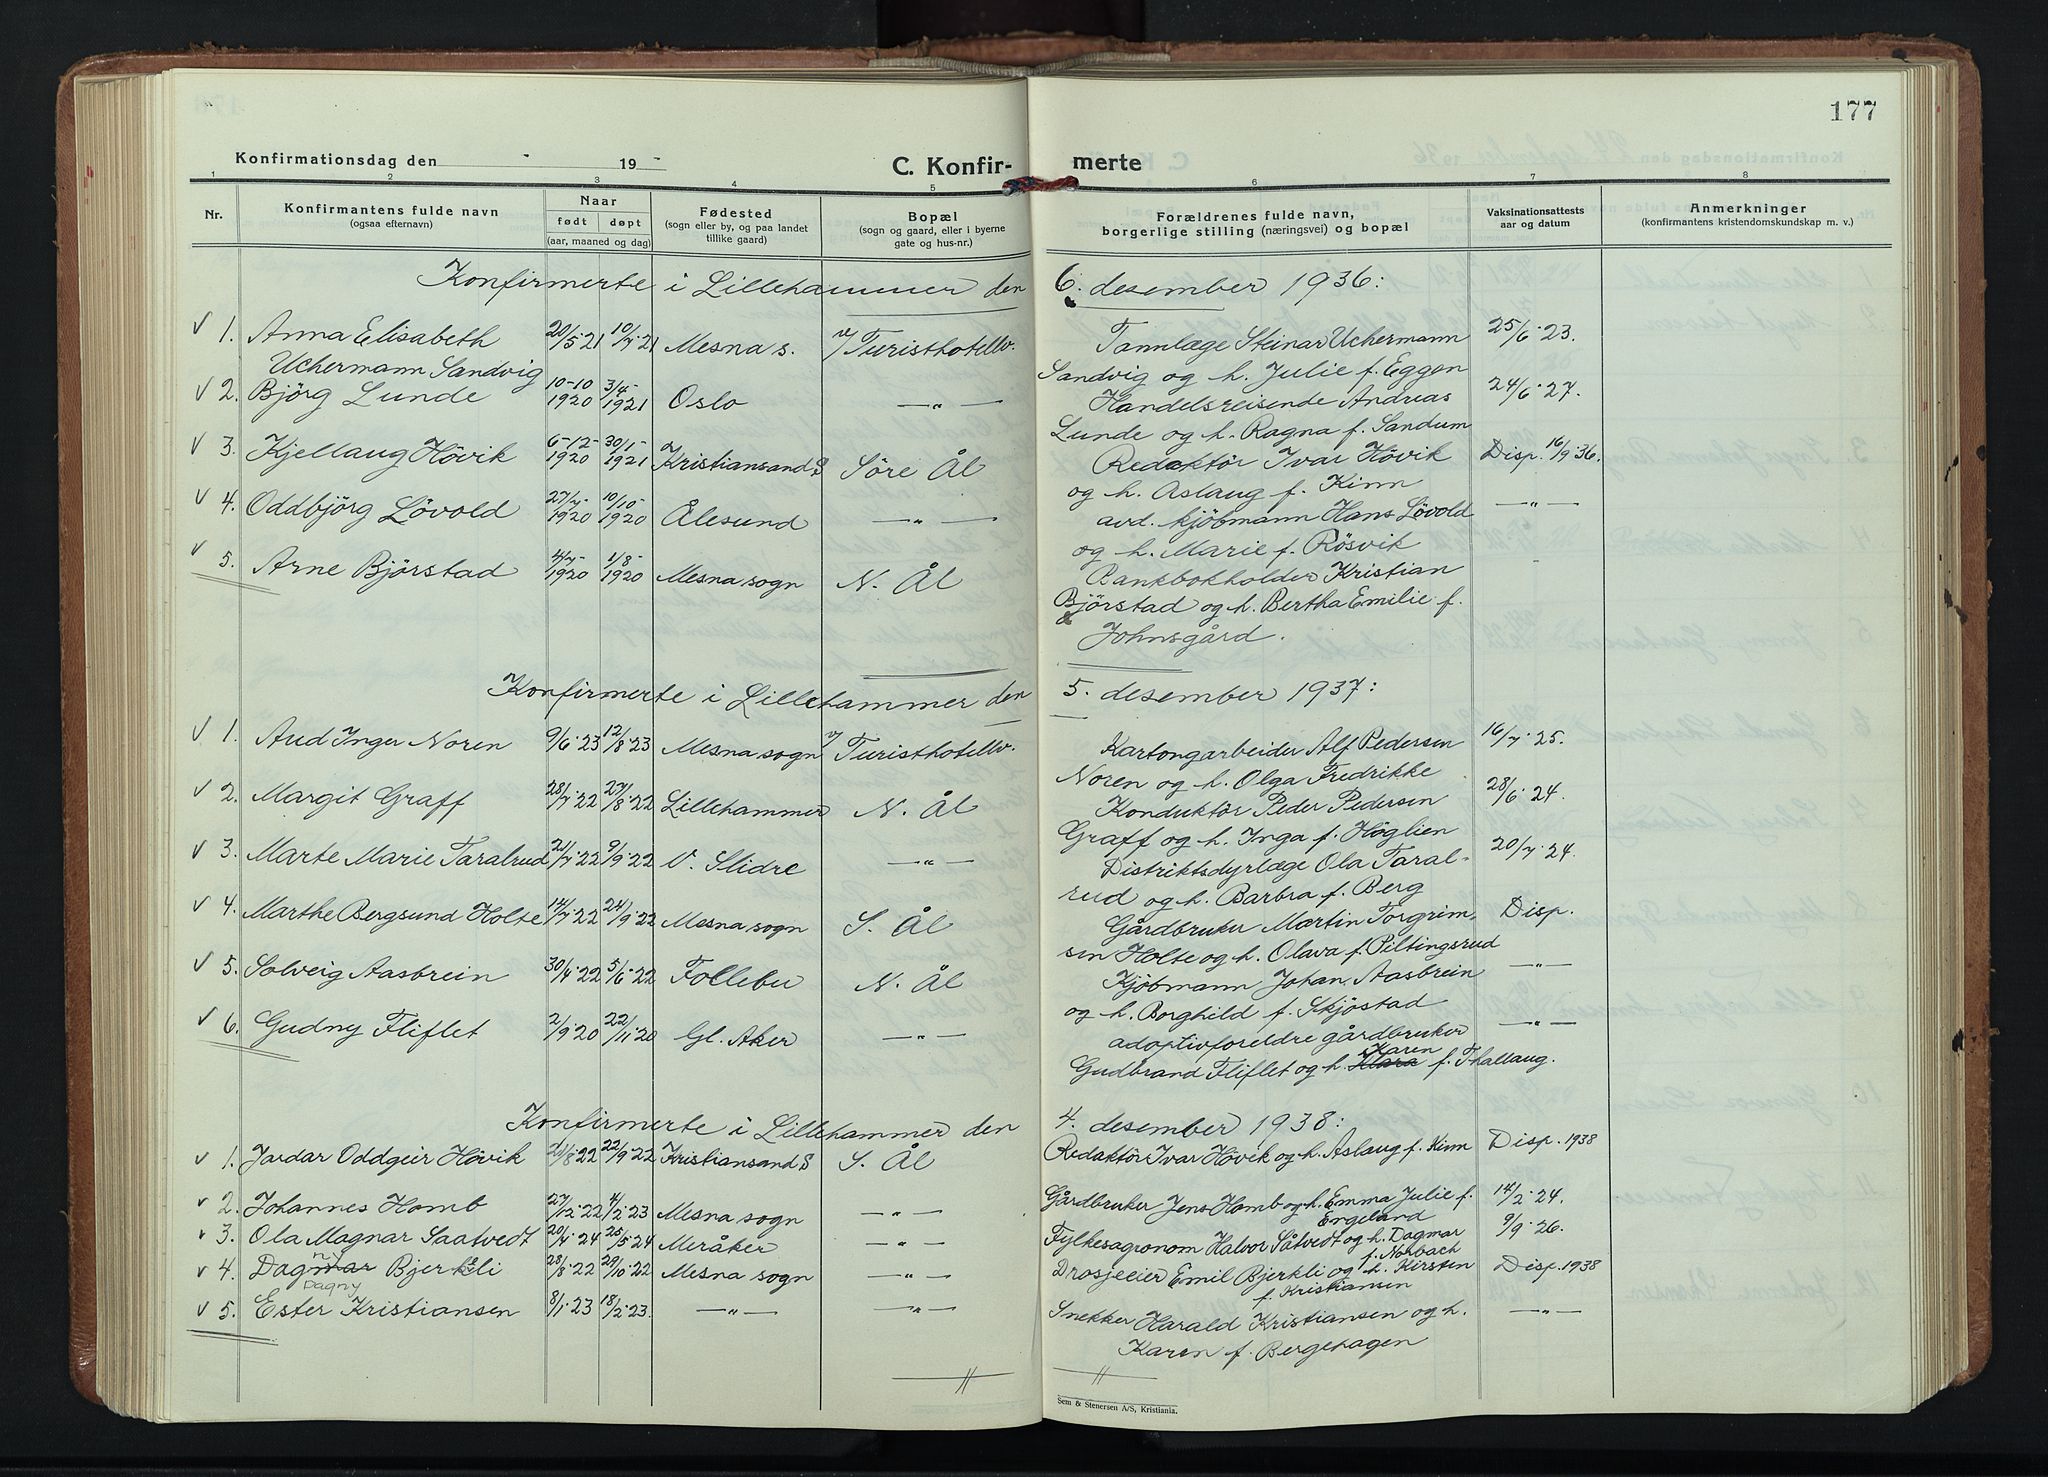 177
Konfirmationsdag den 19
C. Konfir- merte
1 2 3 4 5 6 7 8
Nr.
Konfirmantens fulde navn
(ogsaa efternavn)
Naar
født døpt
(aar, maaned og dag)
Fødested
(sogn eller by, og paa landet
tillike gaard)
Bopæl
(sogn og gaard, eller i byerne
gate og hus-nr.)
Forældrenes fulde navn,
borgerlige stilling (næringsvei) og bopæl
Vaksinationsattests
aar og datum
Anmerkninger
(konfirmantens kristendomskundskap m. v.)
Konfirmerte i Lillehammer den 6. desember 1936:
√ 1. Anna Elisabeth 20/5·21 10/7·21 Mesna s. v/Turisthotellv. Tannlæge Steinar Uchermann 25/6·23.
Uchermann Sandvig Sandvig og h. Julie f. Eggen
√ 2. Björg Lunde 10-10-1920 3/4-1921 Oslo —„— Handelsreisende Andreas 24/6·27.
Lunde og h. Ragna f. Sandum
√ 3. Kjellaug Hövik 6-12-1920 30/1-1921 Kristiansand S Söre Ål Redaktör Ivar Hövik Disp. 16/9·36.
og h. Aslaug f. Kinn
√ 4. Oddbjörg Lövold 27/7-1920 10/10-1920 Ålesund —„— avd. kjöbmann Hans Lövold —„—
og h. Marie f. Rösvik
√ 5. Arne Björstad 4/7-1920 1/8-1920 Mesna sogn N. Ål Bankbokholder Kristian
Björstad og h. Bertha Emilie f.
Johnsgård.
Konfirmerte i Lillehammer den 5. desember 1937:
√ 1. Aud Inger Noren 9/6·23 12/8·23 Mesna sogn v/Turisthotellv. Kartongarbeider Alf Pedersen 16/7·25.
Noren og h. Olga Fredrikke
√ 2. Margit Graff 28/7·22 27/8·22 Lillehammer N. Ål Konduktör Peder Pedersen 28/6·24.
Graff og h. Inga f. Höglien
√ 3. Marte Marie Taralrud 21/7·22 9/9·22 V. Slidre —„— Distriktsdyrlæge Ola Taral- 20/7·24.
rud og h. Barbra f. Berg
√ 4. Marthe Bergsund Holte 14/7·22 24/9·22 Mesna sogn S. Ål Gårdbruker Martin Torgrim- Disp.
sen Holte og h. Olava f. Piltingsrud
√ 5. Solveig Aasbrein 30/4·22 5/6·22 Follebu N. Ål Kjöbmann Johan Aasbrein —„—
og h. Borghild f. Skjöstad
√ 6. Gudny Fliflet 2/9·20 22/11·20 Gl. Aker —„— adoptivforeldre gårdbruker —„—
Karen
Gudbrand Fliflet og h. Klara f. Thallaug.
Konfirmerte i Lillehammer den 4. desember 1938:
√ 1. Jardar Oddgeir Hövik 20/8·22 22/9·22 Kristiansand S S. Ål Redaktör Ivar Hövik og h. Aslaug f. Kinn Disp. 1938
√ 2. Johannes Homb 27/12·22 4/2·23 Mesna sogn —„— Gårdbruker Jens Homb og h. Emma Julie f. 14/2·24.
Engeland
√ 3. Ola Magnar Saatvedt 20/4·24 25/5·24 Meråker —„— Fylkesagronom Halvor Såtvedt og h. Dagmar 9/9·26.
f. Norbach
√ 4. Dagmar Bjerkeli 28/8·22 29/10·22 Mesna sogn —„— Drosjeeier Emil Bjerkli og h. Kirsten Disp. 1938
Dagny f. Kristiansen
√ 5. Ester Kristiansen 8/1·23 18/2·23. —„— —„— Snekker Harald Kristiansen og h. —„—
Karen f. Bergehagen
Sem & Stenersen A/S, Kristiania.